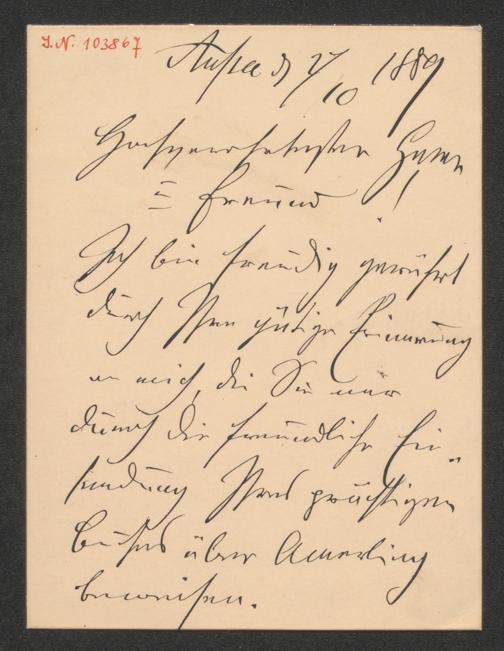 J.N. 103867
Aussee d 27/10 1889
Hochverehrtester Herr
u Freund!
Ich bin freudig gerührt
durch Ihre gütige Erinnerung
an mich, die Sie mir
durch die freundliche Ein-
sendung Ihres prächtigen
Buches über Amerling
beweisen.